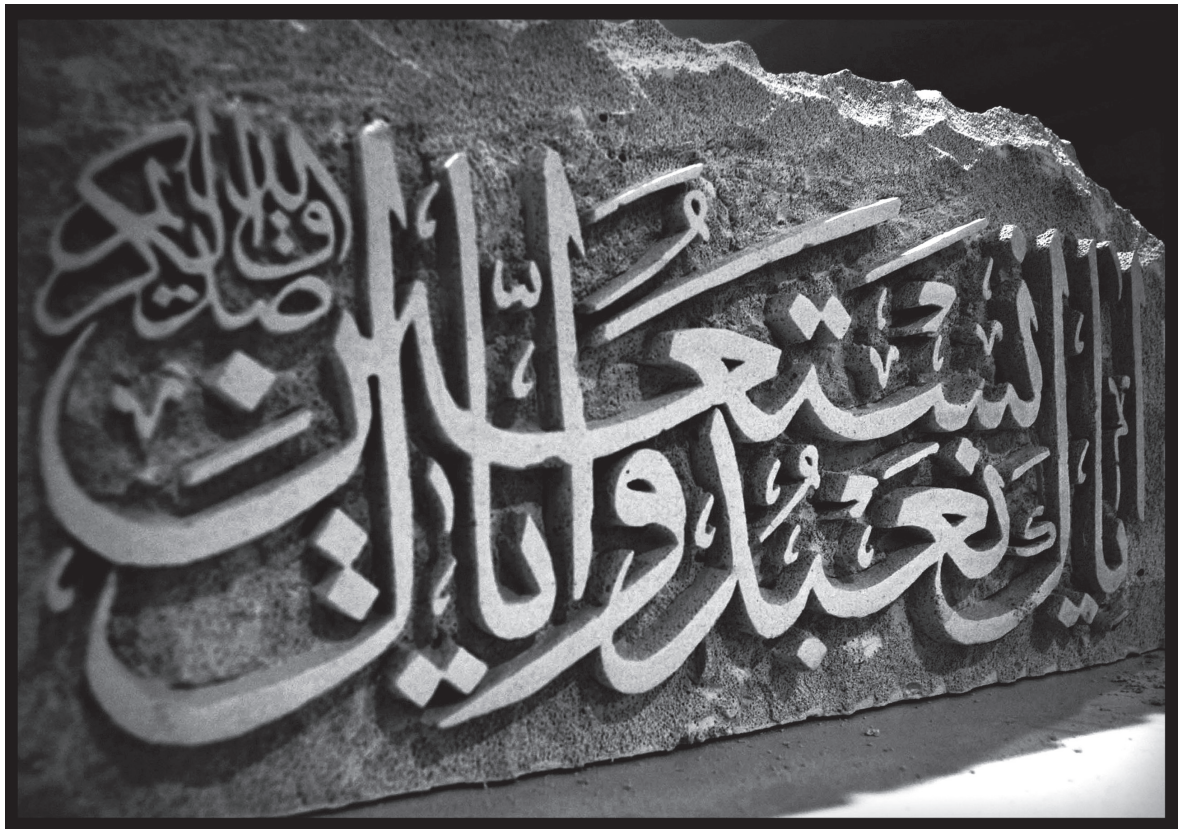 إِيَّاكَ نَعْبُدُ وَإِيَّاكَ نَسْتَعِينُ
صدق الله الكريم